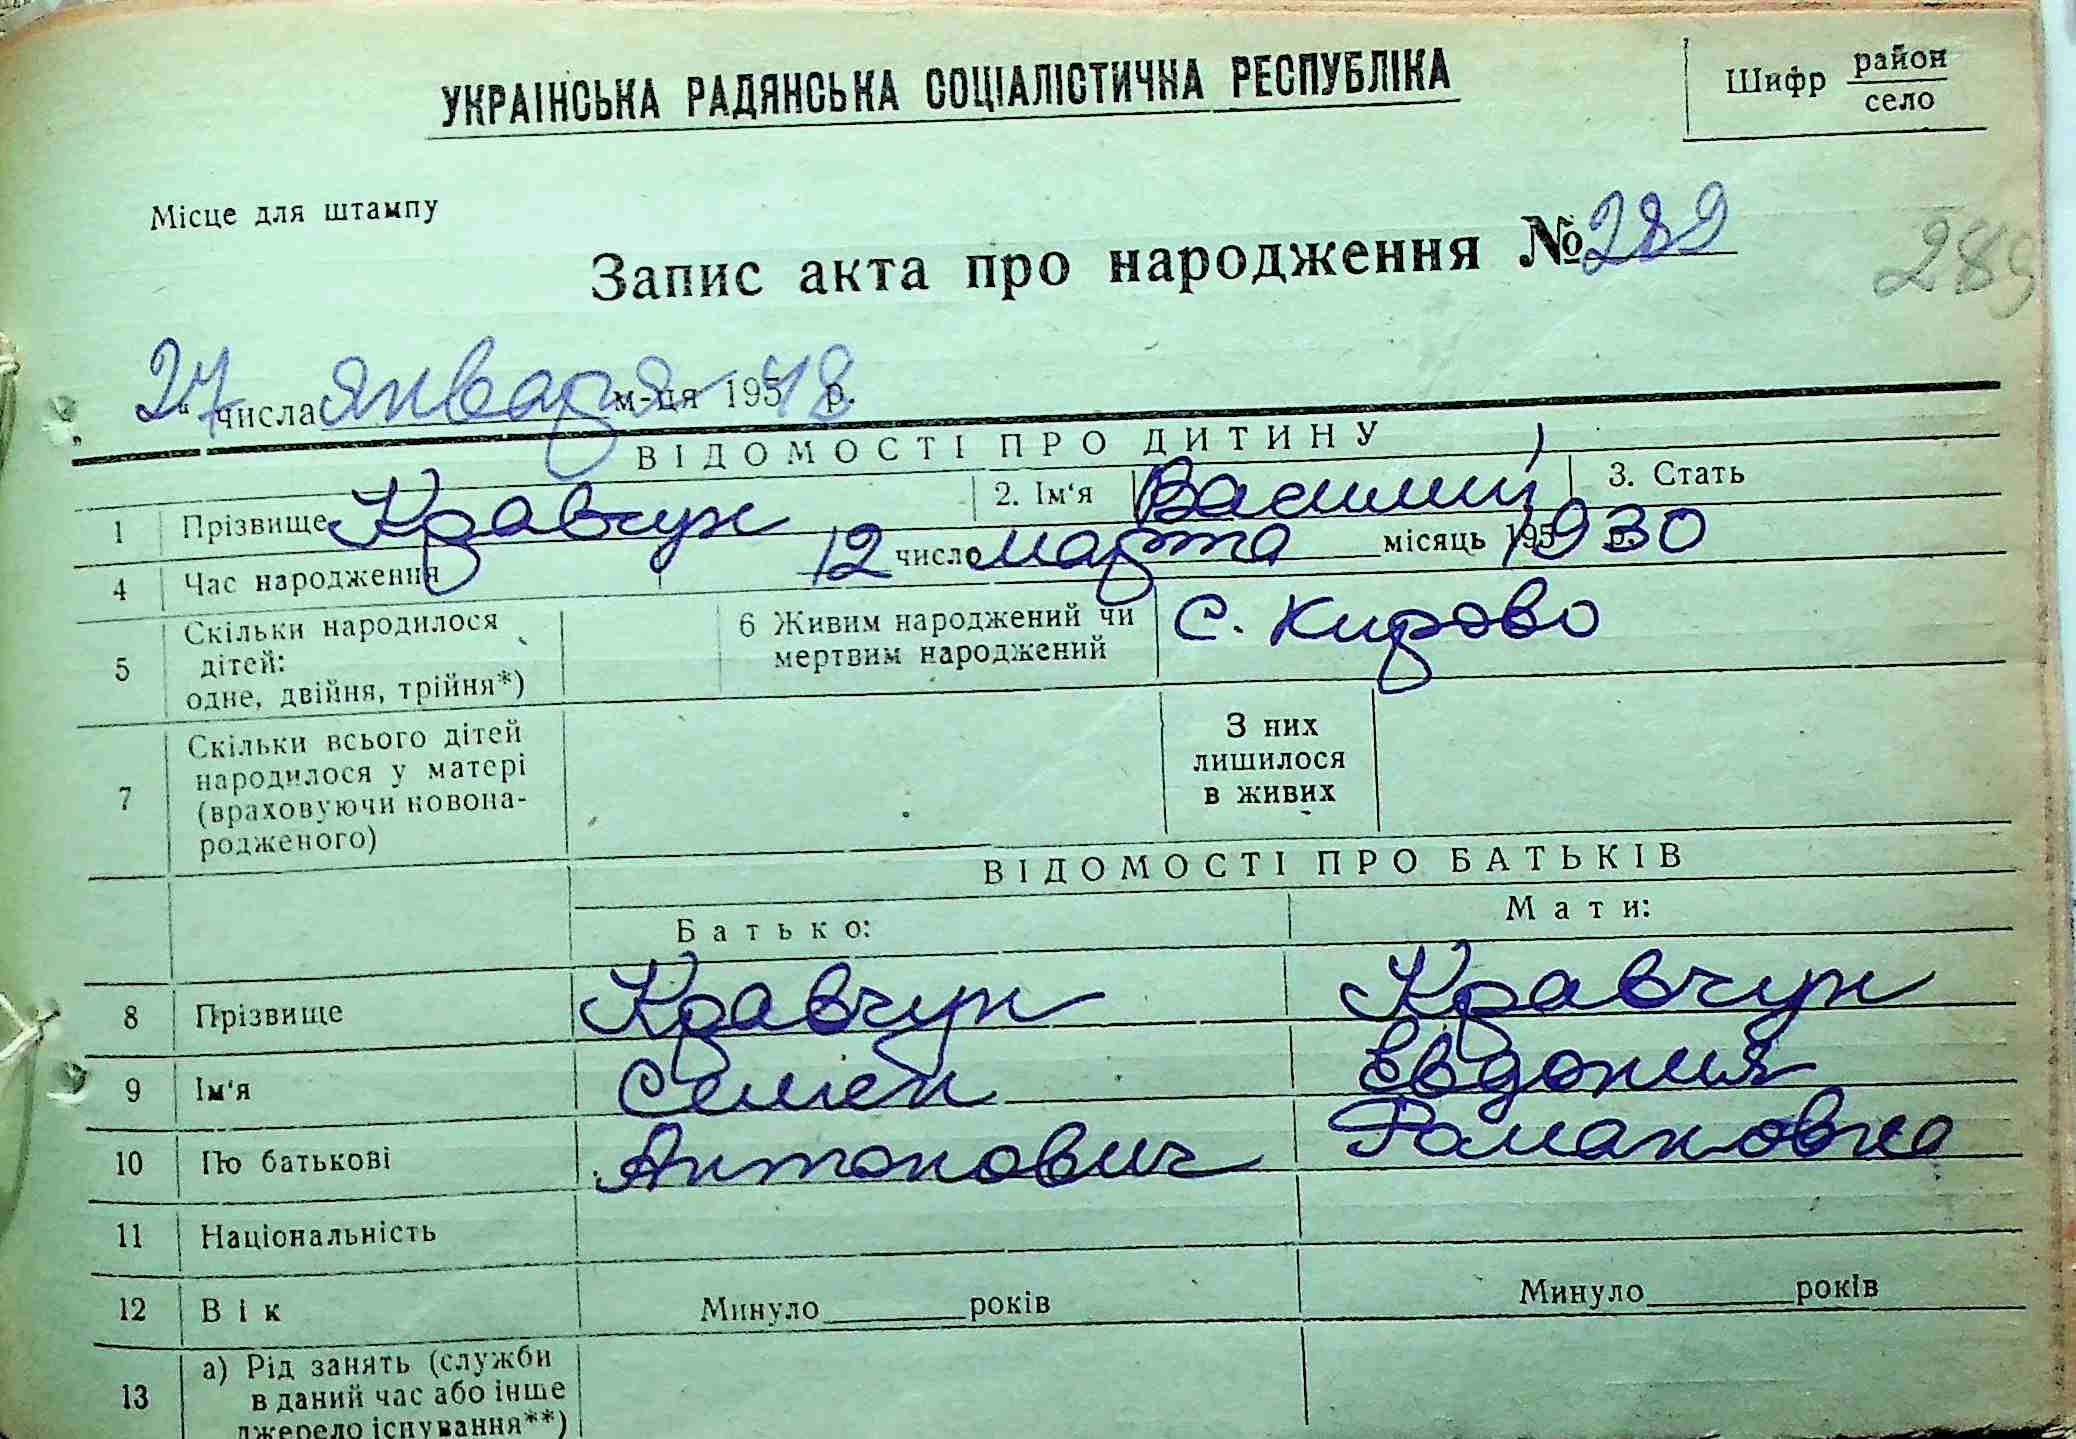 УКРАЇНСЬКА РАДЯНСЬКА СОЦІАЛІСТИЧНА РЕСПУБЛІКА
Шифр район
село
Місце для штампу
Запис акта про народження № 289
289
„27“ числа января м-ця 195 48 р.
ВІДОМОСТІ ПРО ДИТИНУ
1 Прізвище Кравчук 2. Ім'я Василий 3. Стать
4 Час народження 12 число марта місяць 195 1930
5 Скільки народилося дітей: одне, двійня, трійня*) 6 Живим народжений чи мертвим народжений С. Кирово
7 Скільки всього дітей народилося у матері (враховуючи новонародженого) З них лишилося в живих
ВІДОМОСТІ ПРО БАТЬКІВ
Батько: Мати:
8 Прізвище Кравчук Кравчук
9 Ім'я Семен Евдокия
10 По батькові Антонович Романовна
11 Національність
12 Вік Минуло років Минуло років
13 а) Рід занять (служби
в даний час або інше
джерело існування**)